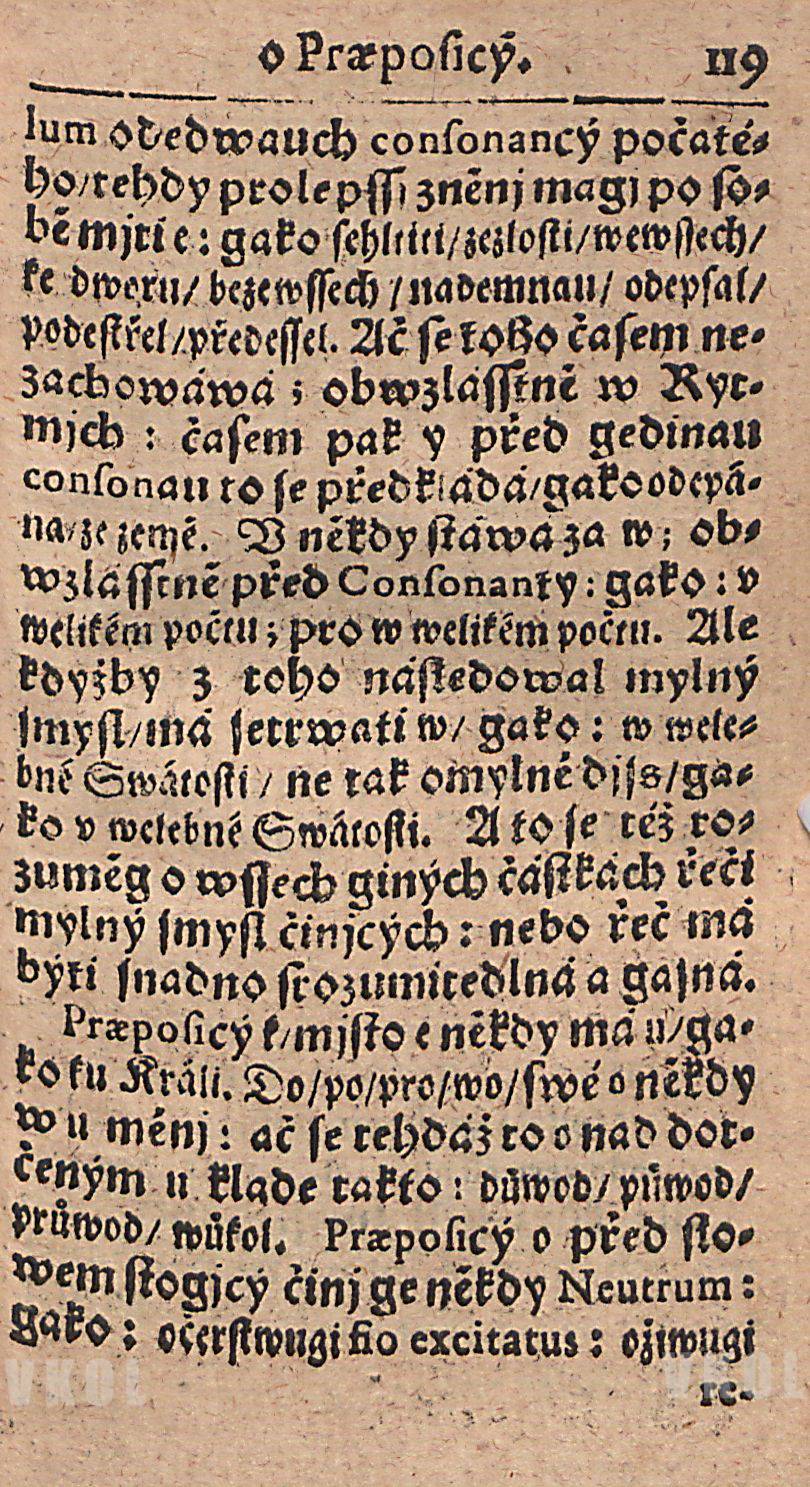 o Præposicý. 119
lum ode dwauch consonancý počaté-
ho/tehdy pro lepssj zněnj magj po so-
bě mjti e: gako sehltiti/zezlosti/wewssech/
ke dworu/ bezewssech/nademnau/ odepsal/
podestřel/předessel. Ač se toho časem ne-
zachowáwá; obwzlásstně w Ryt-
mjch: časem pak y před gedinau
consonau to se předkládá/gako odepá-
na/ze země. V někdy stáwá za w; ob-
wzlásstně před Consonanty: gako: v
welikém počtu; pro w welikém počtu. Ale
kdyžby z toho následowal mylný
smysl/má setrwati w/ gako: w weleb-
né Swátosti/ ne tak omylně djjs/ga-
ko v welebné Swátosti. A to se též ro-
zuměg o wssech giných částkách řeči
mylný smysl činjcých: nebo řeč má
býti snadno srozumitedlná a gasná.
Præposicý k/mjsto e někdy má u/ga-
ko ku Králi. Do/po/pro/wo/swé o někdy
w u měnj: ač se tehdáž to o nad dot-
čeným u klade takto: důwod/půwod/
průwod/ wůkol. Præposicý o před slo-
wem stogjcý činj ge někdy Neutrum:
gako: očerstwugi fio excitatus: ožiwugi
re-
VKOL
VKOL